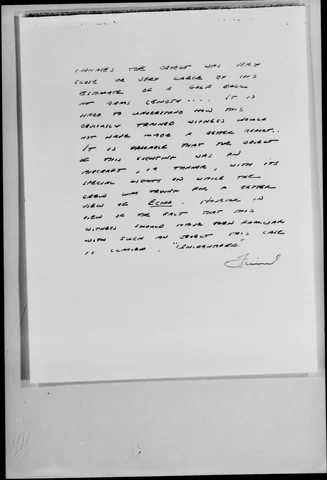 INDICATES THE OBJECT WAS VERY
CLOSE OR VERY LARGE BY HIS
ESTIMATE OF A GOLF BALL
AT ARMS LENGTH.... IT IS
HARD TO UNDERSTAND HOW THIS
OBVIOUSLY TRAINED WITNESS WOULD
NOT HAVE MADE A BETTER REPORT..
IT IS PROBABLE THAT THE OBJECT
OF THIS SIGHTING WAS AN
AIRCRAFT, OR TANKER, WITH ITS
SPECIAL LIGHTS ON WHILE THE
CREW WAS TRYING FOR A BETTER
VIEW OF ECHO. HOWEVER IN
VIEW OF THE FACT THAT THIS
WITNESS SHOULD HAVE BEEN FAMILIAR
WITH SUCH AN OBJECT THIS CASE
IS CARRIED "UNIDENTIFIED."